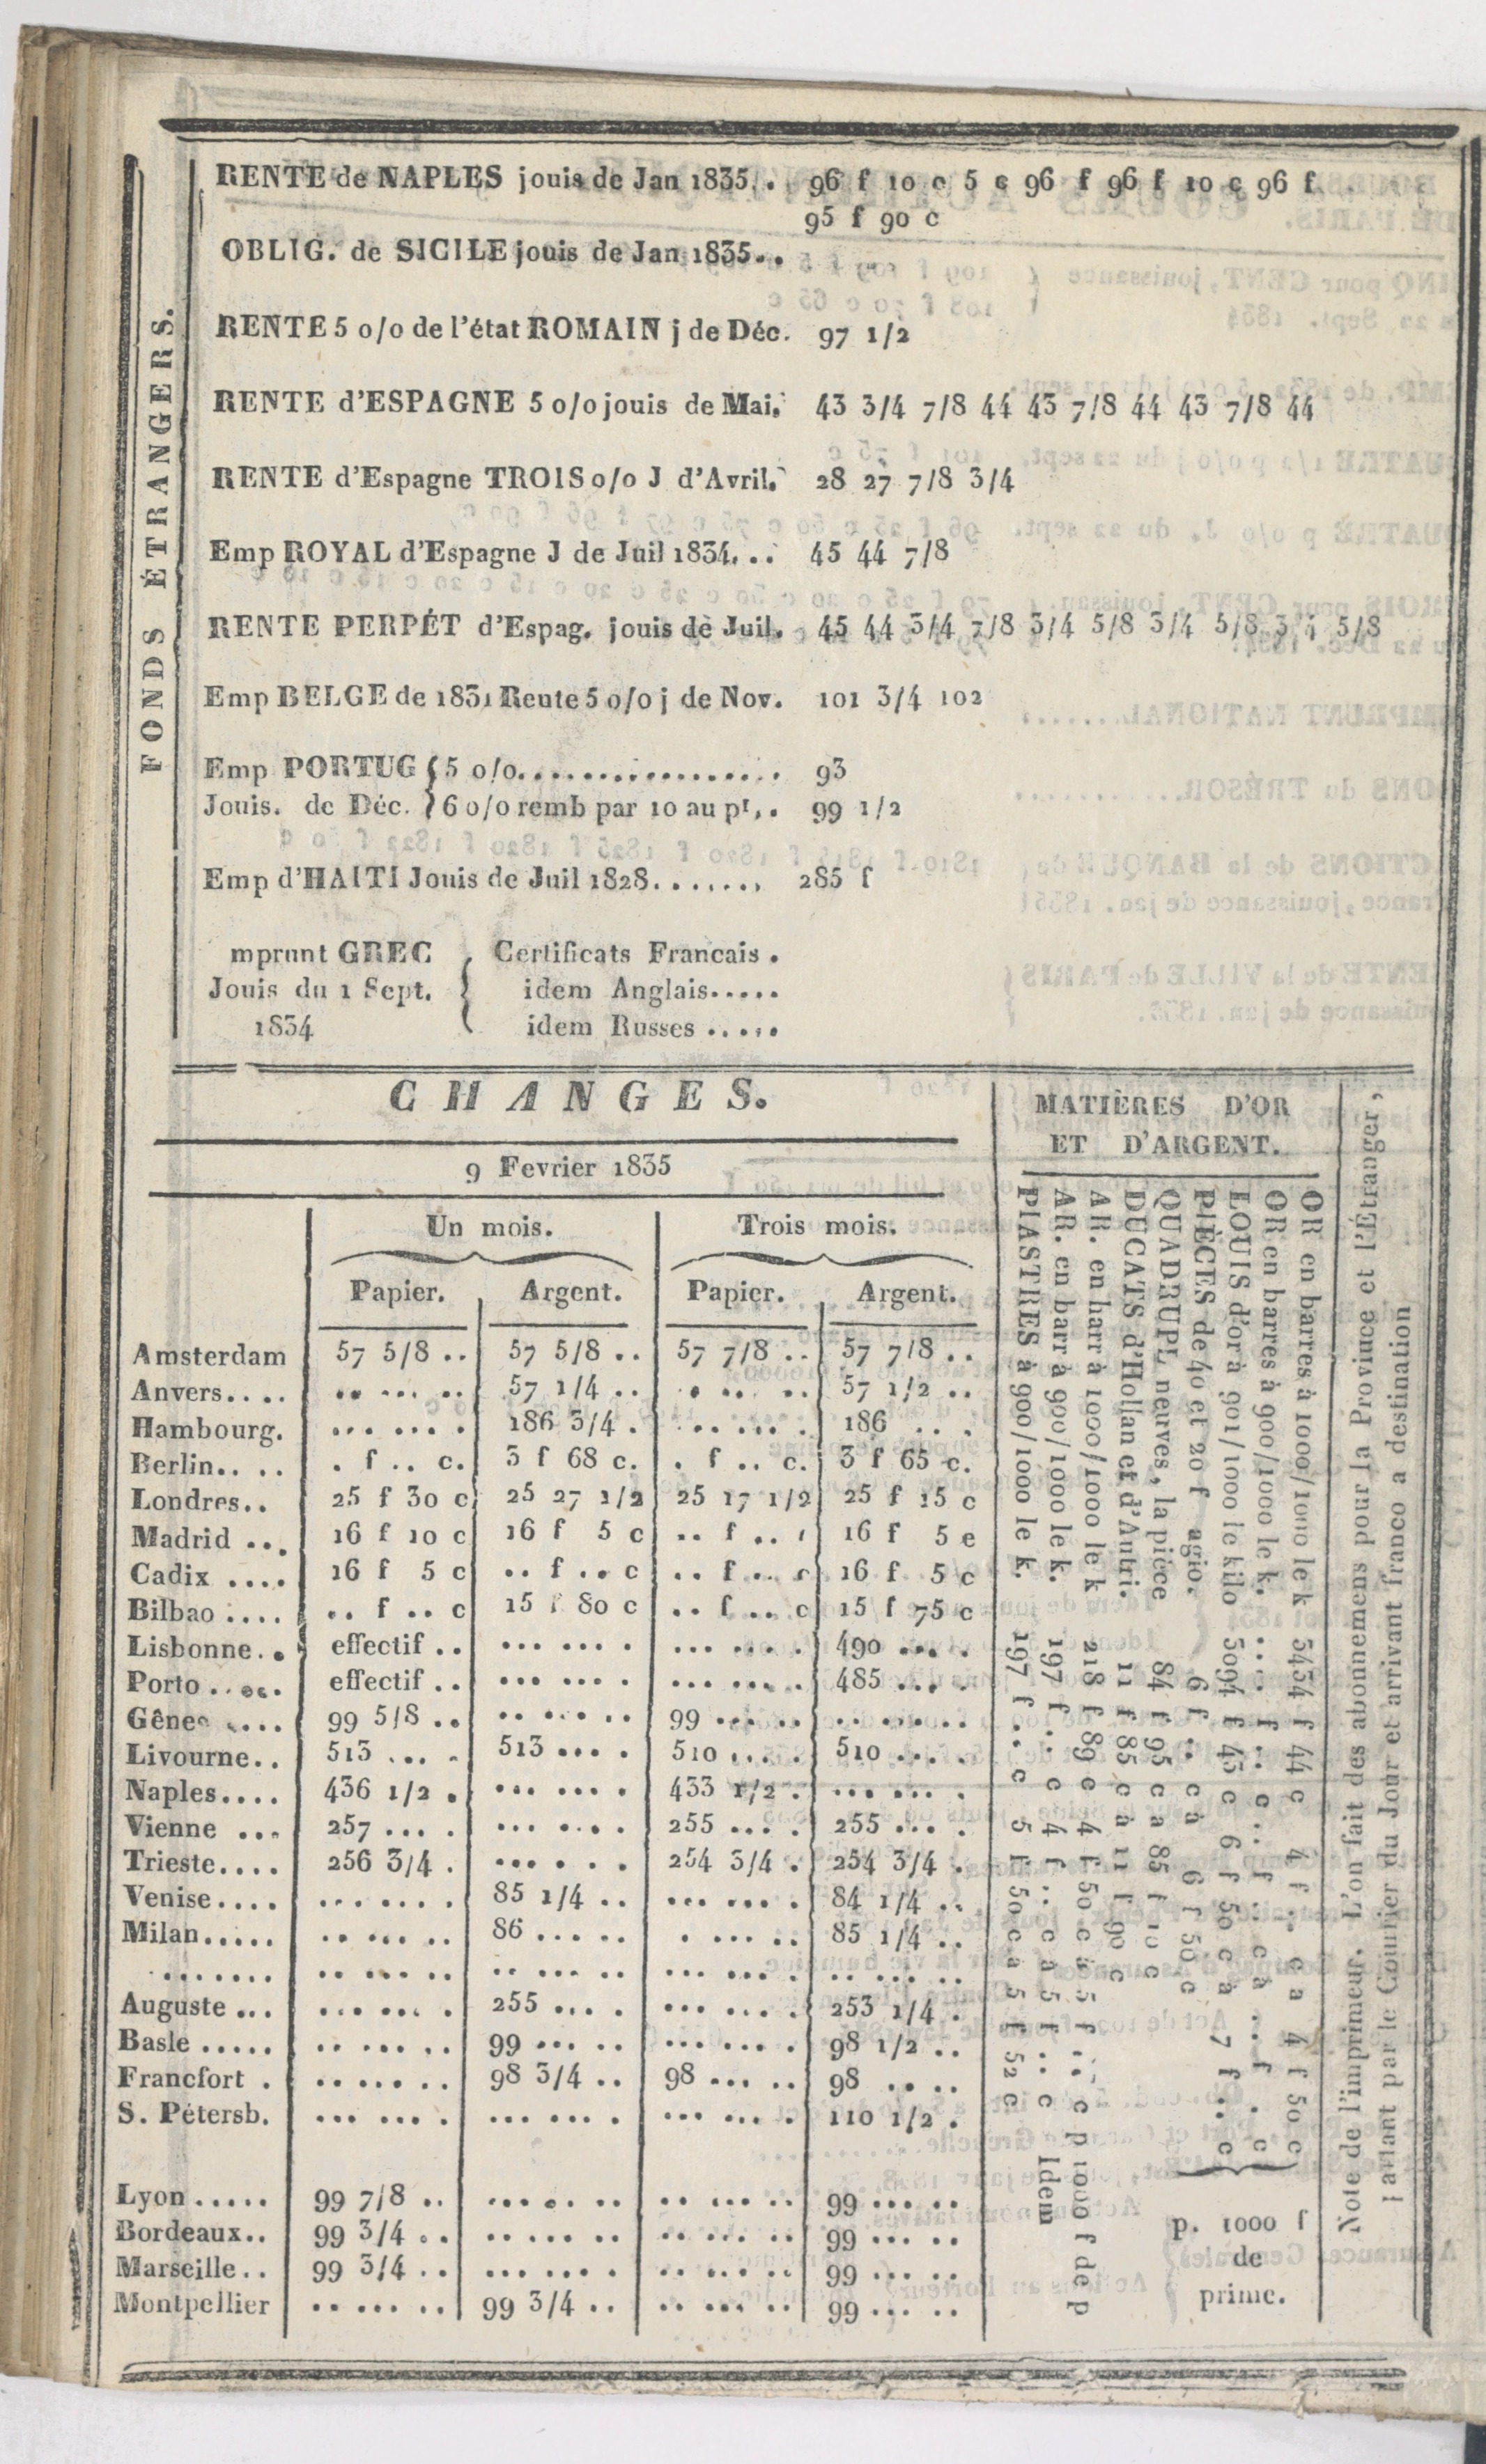 FONDS ÉTRANGERS.
RENTE de NAPLES jouis de Jan 1835.. 96 f 10 c 5 c 96 f 96 f 10 c 96 f
95 f 90 c
OBLIG. de SICILE jouis de Jan 1835..
RENTE 5 o/o de l'état ROMAIN j de Déc. 97 1/2
RENTE d'ESPAGNE 5 o/o jouis de Mai. 43 3/4 7/8 44 43 7/8 44 43 7/8 44
RENTE d'Espagne TROIS o/o J d'Avril. 28 27 7/8 3/4
Emp ROYAL d'Espagne J de Juil 1834... 45 44 7/8
RENTE PERPÉT d'Espag. jouis de Juil. 45 44 3/4 7/8 3/4 5/8 3/4 5/8 3/4 5/8
Emp BELGE de 1831 Rente 5 o/o j de Nov. 101 3/4 102
Emp PORTUG { 5 o/o................. 93
Jouis. de Déc. } 6 o/o remb par 10 au pr,. 99 1/2
Emp d'HAITI Jouis de Juil 1828....... 285 f
mprunt GREC { Certificats Francais .
Jouis du 1 Sept. idem Anglais.....
1834 idem Russes .....
CHANGES.
9 Fevrier 1835
Un mois. Trois mois.
Papier. Argent. Papier. Argent.
Amsterdam 57 5/8 .. 57 5/8 .. 57 7/8 .. 57 7/8 ..
Anvers.... .. ... .. 57 1/4 .. . .. .. 57 1/2 ..
Hambourg. ... ... . 186 3/4 . .. ... . 186 .. .
Berlin.. .. . f .. c. 3 f 68 c. . f .. c. 3 f 65 c.
Londres.. 25 f 30 c 25 27 1/2 25 17 1/2 25 f 15 c
Madrid ... 16 f 10 c 16 f 5 c .. f .. 16 f 5 e
Cadix .... 16 f 5 c .. f .. c .. f .. c 16 f 5 c
Bilbao .... .. f .. c 15 f 80 c .. f .. c 15 f 75 c
Lisbonne.. effectif .. ... ... . ... ... . 490 ... .
Porto ..... effectif .. ... ... . ... ... . 485 ... .
Gênes .... 99 5/8 .. .. ... .. 99 ... .. .. ... ..
Livourne.. 513 ... . 513 ... . 510 ... . 510 ... .
Naples.... 436 1/2 . ... ... . 433 1/2 . ... ... .
Vienne ... 257 ... . ... ... . 255 ... . 255 ... .
Trieste.... 256 3/4 . ... ... . 254 3/4 . 254 3/4 .
Venise.... ... ... . 85 1/4 .. ... ... . 84 1/4 ..
Milan..... .. ... .. 86 ... .. . ... .. 85 1/4 ..
....... .. ... .. .. ... .. ... ... . .. ... ..
Auguste ... ... ... . 255 ... . ... ... . 253 1/4 .
Basle ..... .. ... .. 99 ... .. ... ... . 98 1/2 ..
Francfort . .. ... .. 98 3/4 .. 98 ... .. 98 .. ..
S. Pétersb. ... ... . ... ... . ... ... . 110 1/2 .
Lyon ..... 99 7/8 .. ... .. .. .. ... .. 99 ... ..
Bordeaux.. 99 3/4 .. .. ... .. .. ... .. 99 ... ..
Marseille.. 99 3/4 .. ... ... . .. ... .. 99 ... ..
Montpellier .. ... .. 99 3/4 .. .. ... .. 99 ... ..
MATIÈRES D'OR
ET D'ARGENT.
OR en barres à 1000/1000 le k 3434 f 44 c 4 f .. c a 4 f 50 c
OR en barres à 900/1000 le k. .... f .. c .. f .. c à .. f . c
LOUIS d'or à 901/1000 le kilo 3094 f 43 c 6 f 50 c à 7 f .. c
PIÈCES de 40 et 20 f agio. 6 f .. c à 6 f 50 c
QUADRUPL neuves, la pièce 84 f 95 c a 85 f 10 c
DUCATS d'Hollan et d'Autri. 11 f 85 c à 11 f 90 c
AR. en barr à 1000/1000 le k 218 f 89 c 4 f 50 c à 5 f .. c p 1000 f de p
AR. en barr à 900/1000 le k. 197 f .. c 4 f .. c à 5 f .. c Idem
PIASTRES à 900/1000 le k. 197 f .. c 5 f 50 c a 5 f 52 c
p. 1000 f
de
prime.
Note de l'imprimeur. L'on fait des abonnemens pour la Province et l'Étranger,
Partant par le Courier du Jour et arrivant franco a destination